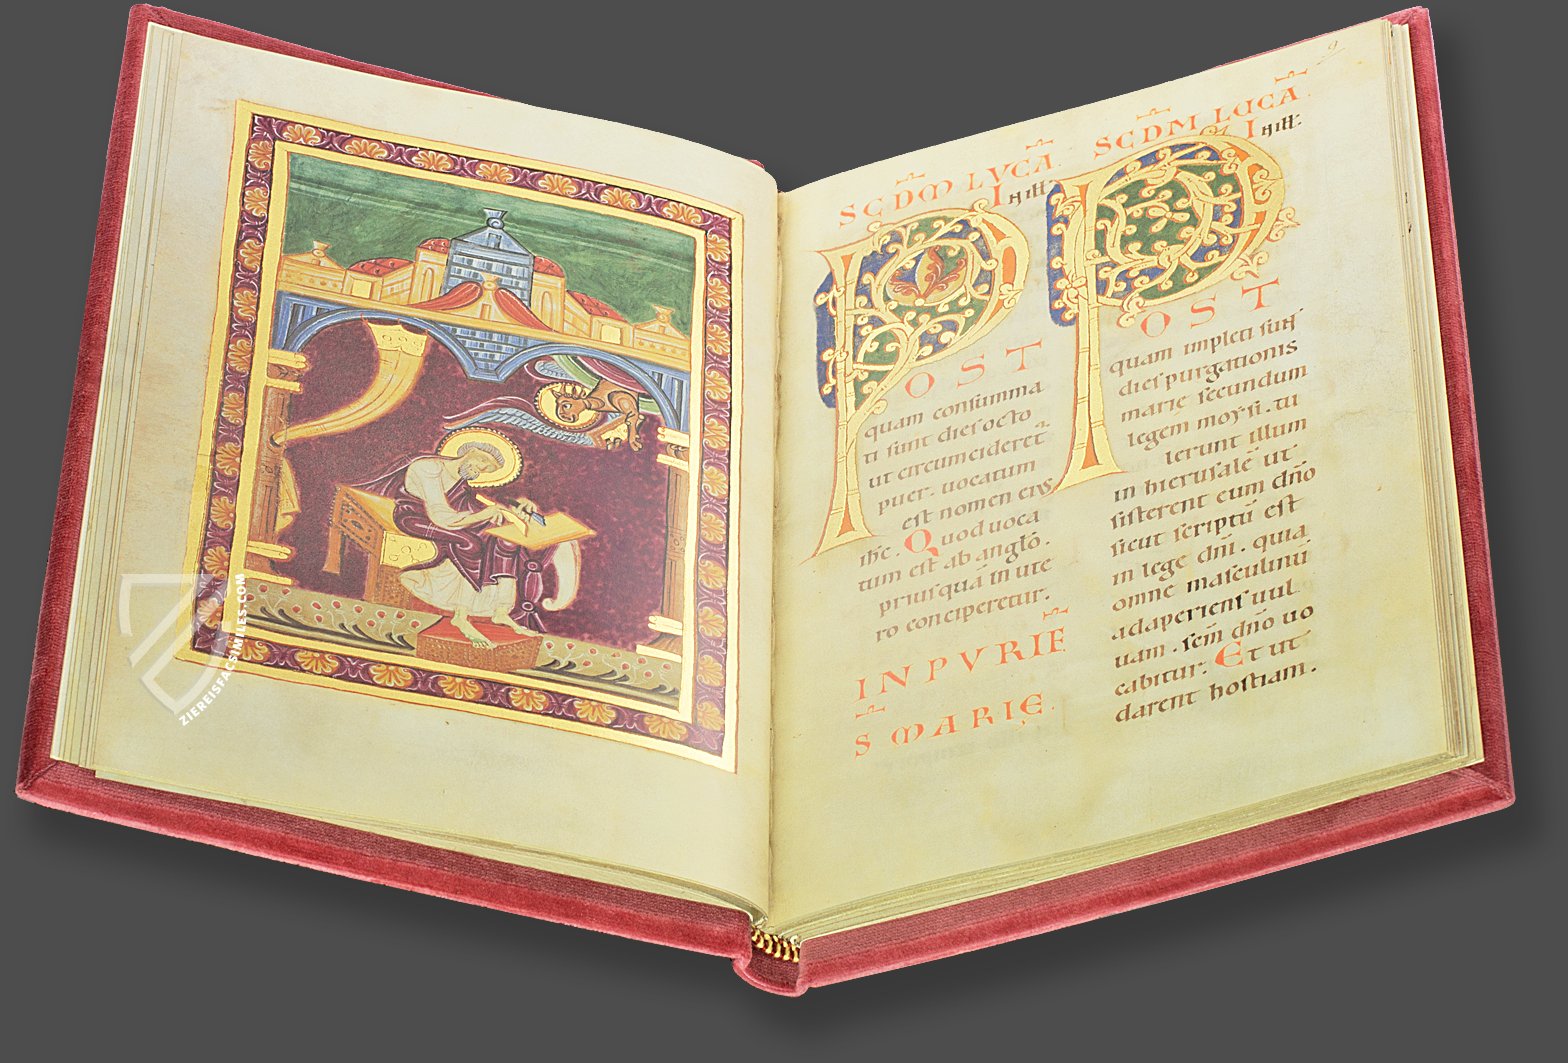 9
SCDM LVCA
In ill̅.
POST
quam consumma
ti sunt dies octo
ut circumcideret̅
puer. uocatum
est nomen eius
ih̅c. Quod uoca
tum est ab anglo̅.
priusqua̅ in ute
ro conciperetur.
IN PVRIF
S MARIE.
SCDM LUCA
In ill̅.
POST
quam impleti sunt
dies purgationis
marie secundum
legem moysi. tu
lerunt illum
in hierusale̅ ut
sisterent eum dn̅o
sicut scriptu̅ est
in lege dn̅i. quia
omne masculinu̅
adaperiens uul
uam. scm̅ dn̅o uo
cabitur. Et ut
darent hostiam.
ZIEREISFACSIMILES.COM